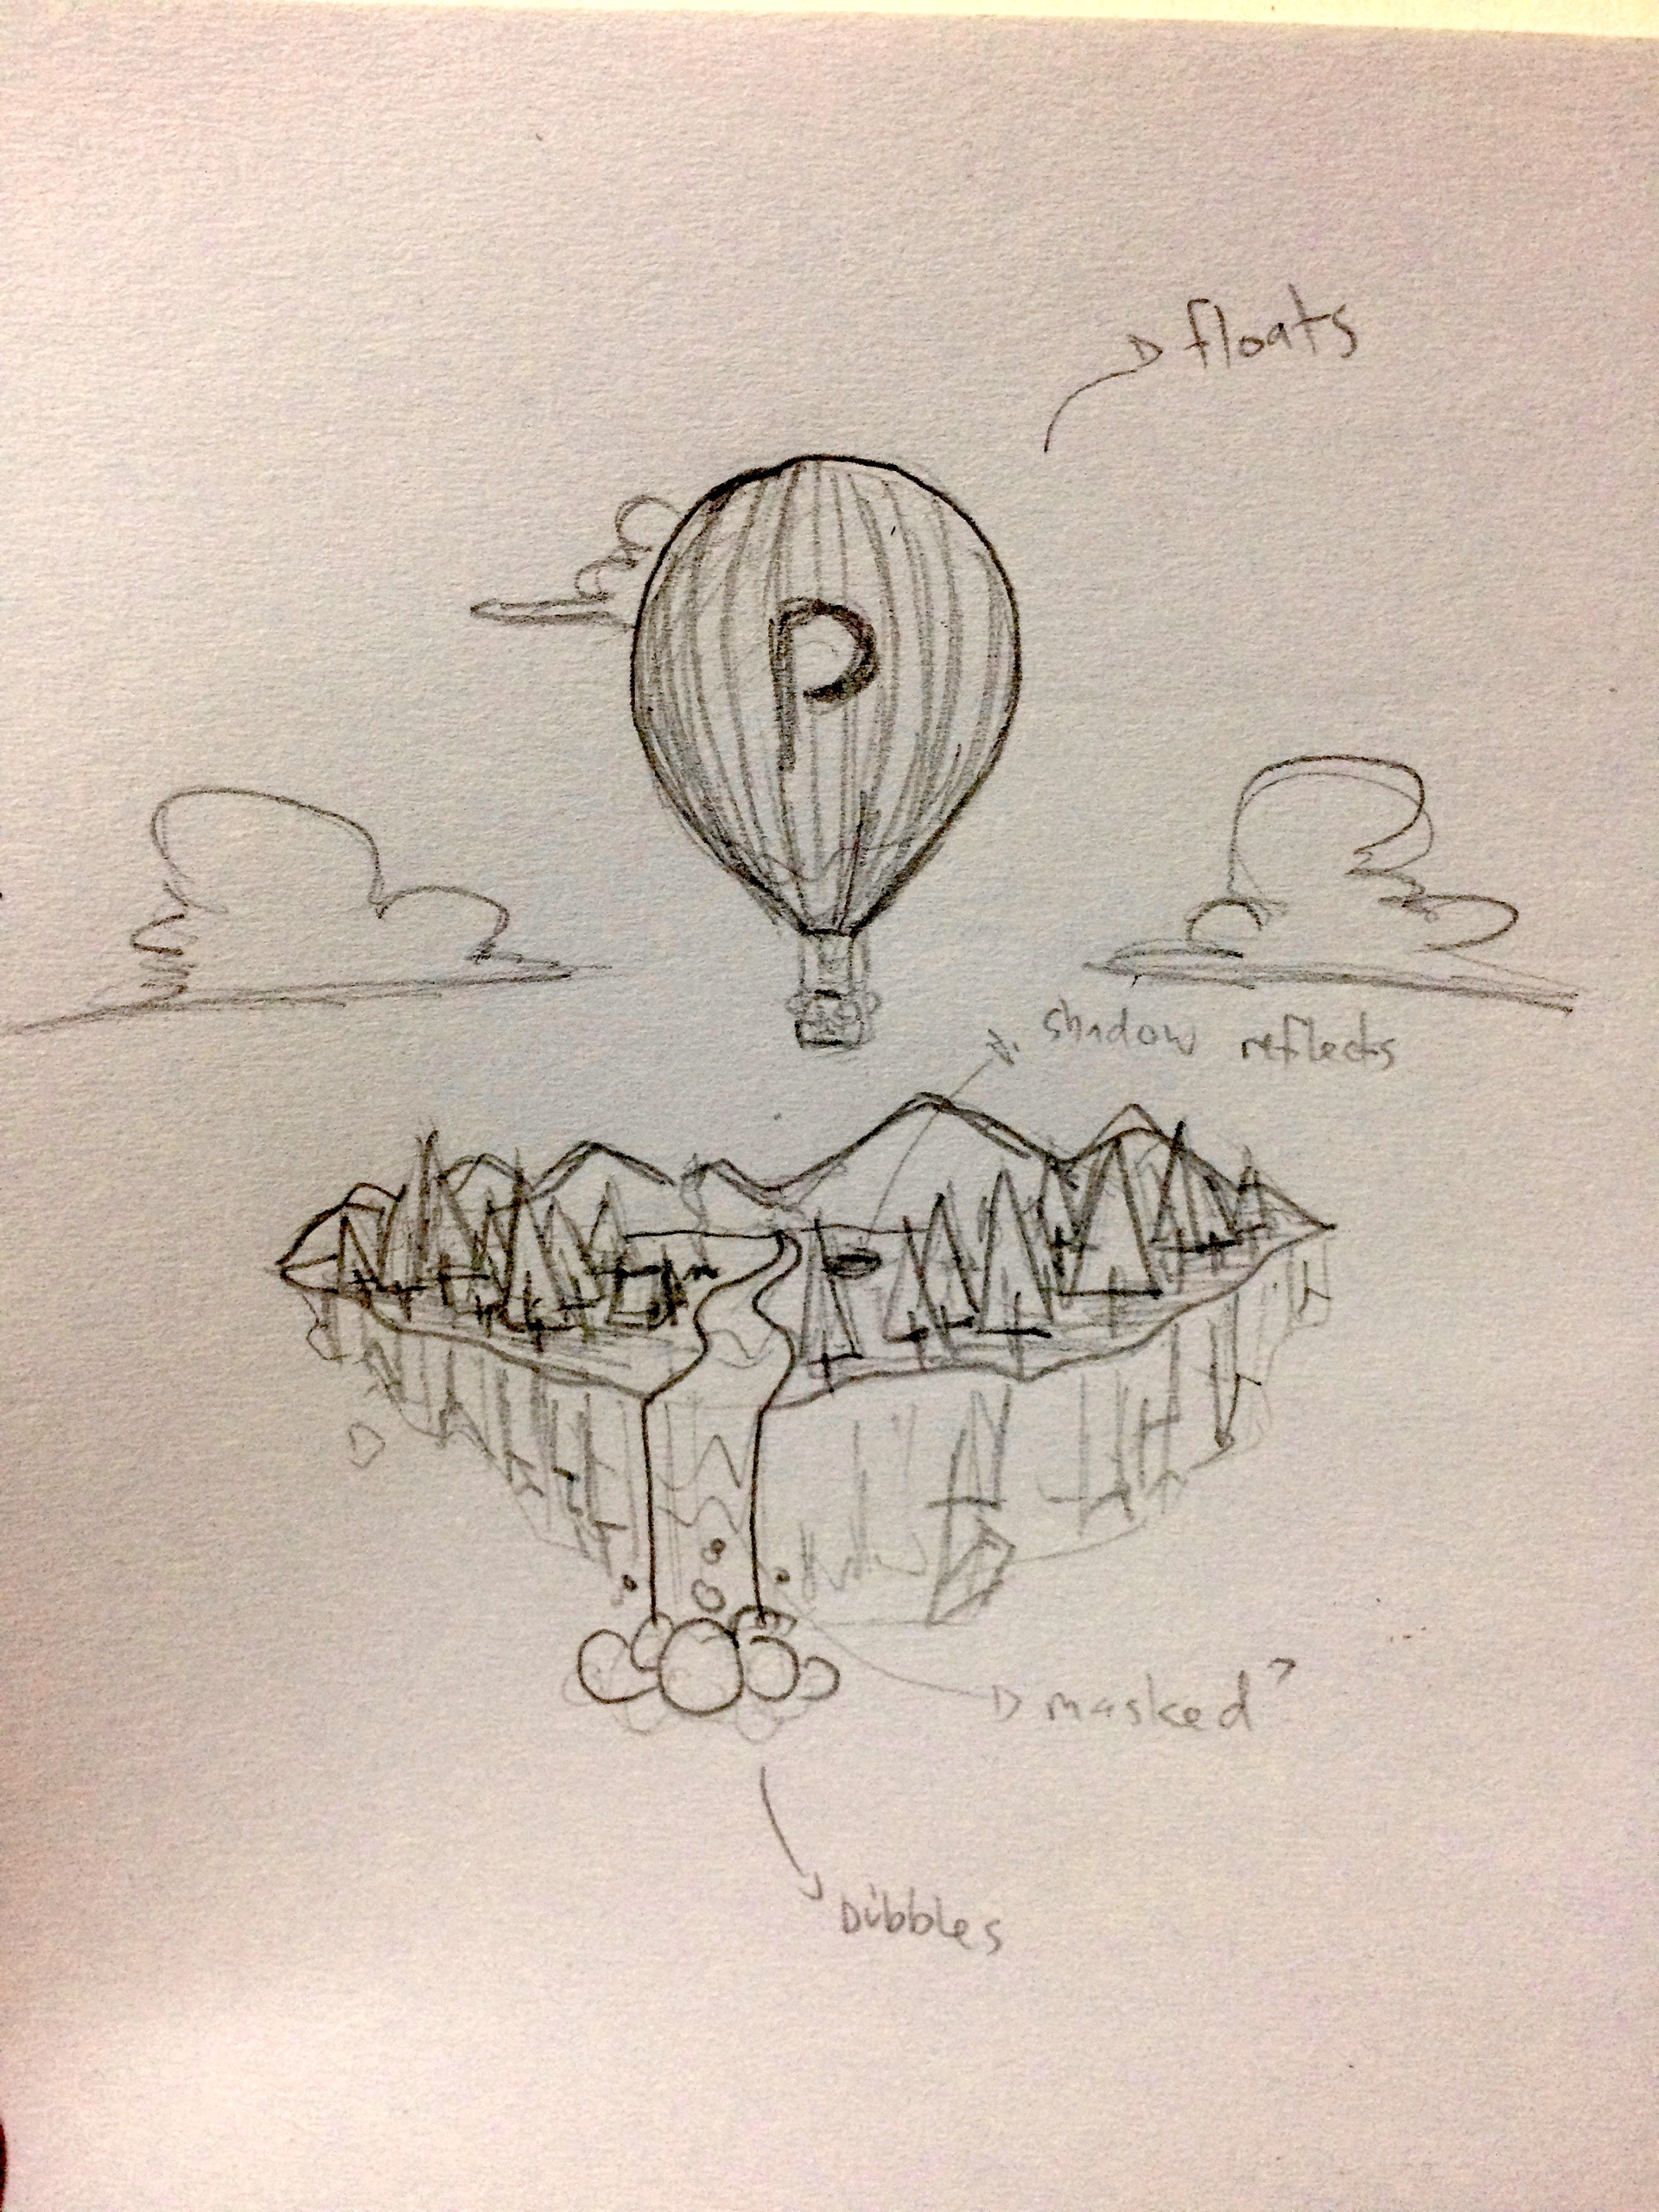 floats
P
shadow reflects
masked?
Dibbles